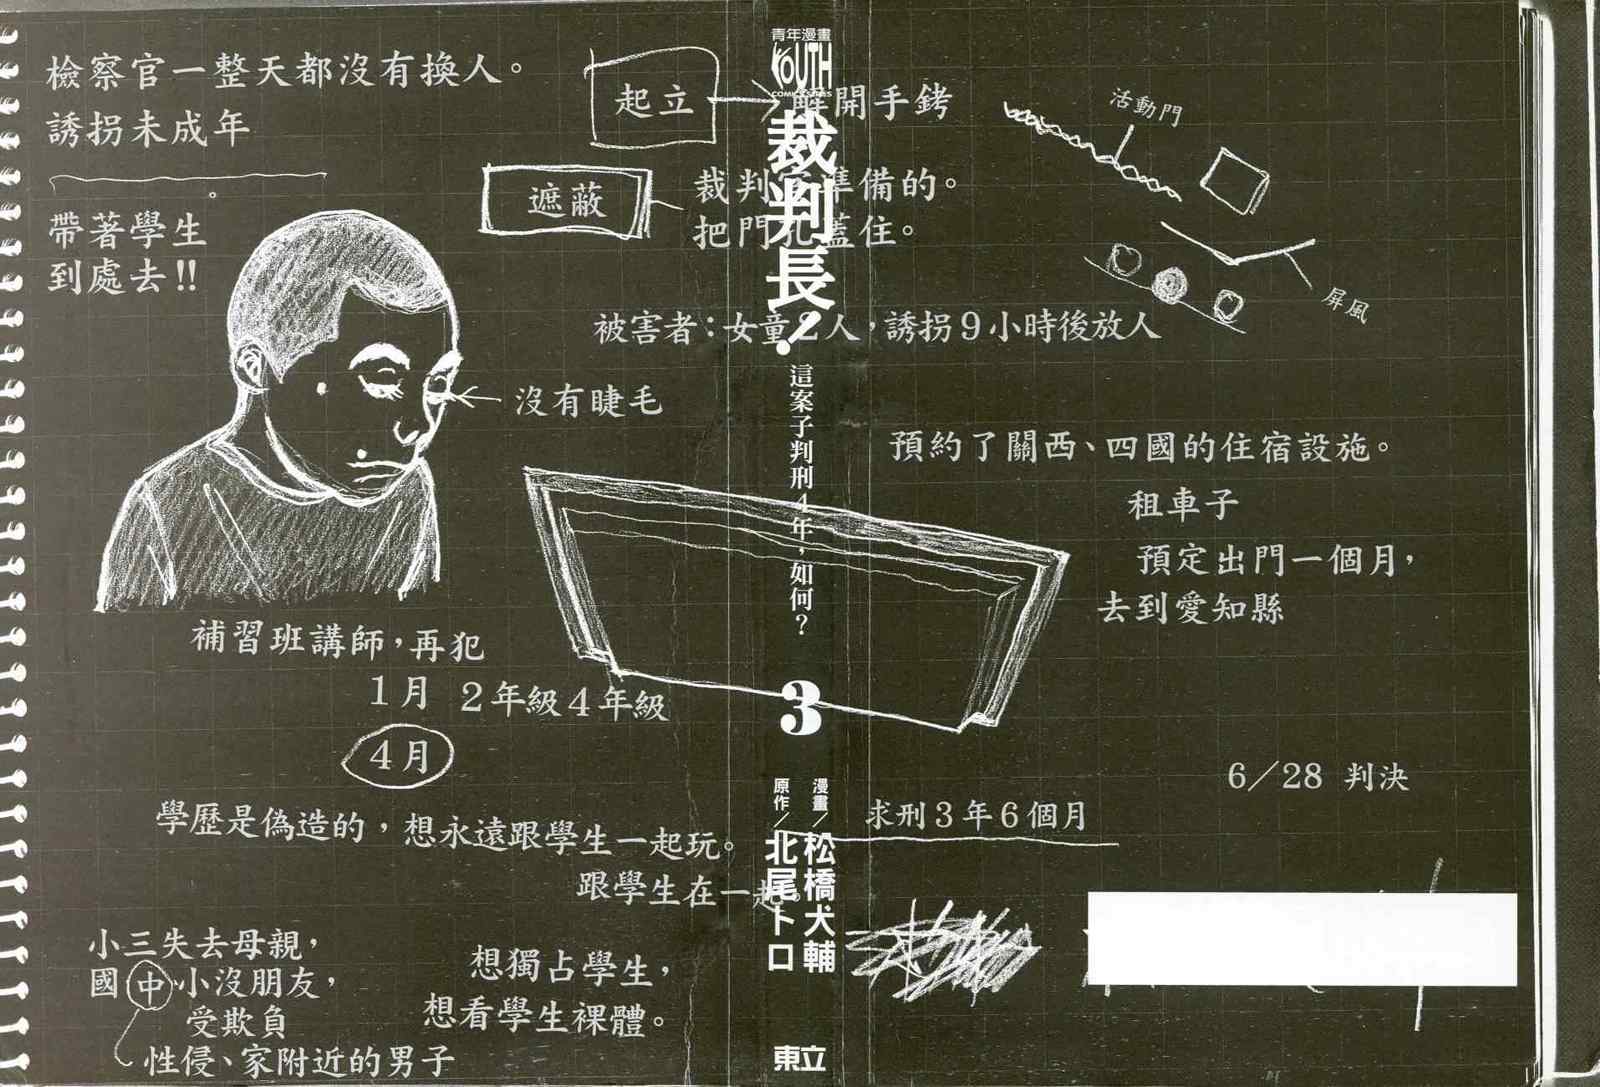 檢察官一整天都沒有換人。
誘拐未成年
帶著學生
到處去!!
起立
解開手銬
遮蔽
裁判 準備的。
把門孔蓋住。
活動門
屏風
被害者：女童2人，誘拐9小時後放人
沒有睫毛
預約了關西、四國的住宿設施。
租車子
預定出門一個月，
去到愛知縣
補習班講師，再犯
1月 2年級4年級
4月
學歷是偽造的，想永遠跟學生一起玩。
跟學生在一起。
6／28 判決
求刑3年6個月
小三失去母親，
國中、小沒朋友，
受欺負
性侵、家附近的男子
想獨占學生，
想看學生裸體。
青年漫畫
YOUTH
COMICS SERIES
裁判長！
這案子判刑4年，如何？
3
漫畫／松橋犬輔
原作／北尾トロ
東立